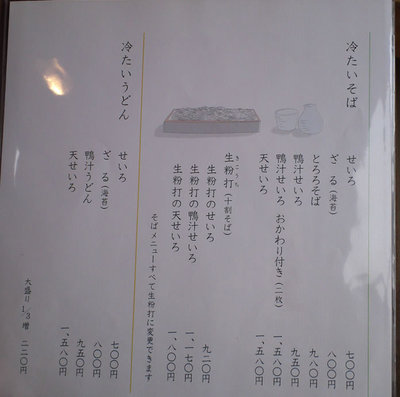 冷たいそば
せいろ 七〇〇円
ざる(海苔) 八〇〇円
とろろそば 九八〇円
鴨汁せいろ 九五〇円
鴨汁せいろ おかわり付き(二枚) 一、五八〇円
天せいろ 一、五八〇円
きこうち
生粉打(十割そば)
生粉打のせいろ 九二〇円
生粉打の鴨汁せいろ 一、一七〇円
生粉打の天せいろ 一、八〇〇円
そばメニューすべて生粉打に変更できます
冷たいうどん
せいろ 七〇〇円
ざる(海苔) 八〇〇円
鴨汁うどん 九五〇円
天せいろ 一、五八〇円
大盛り1/3増 二二〇円